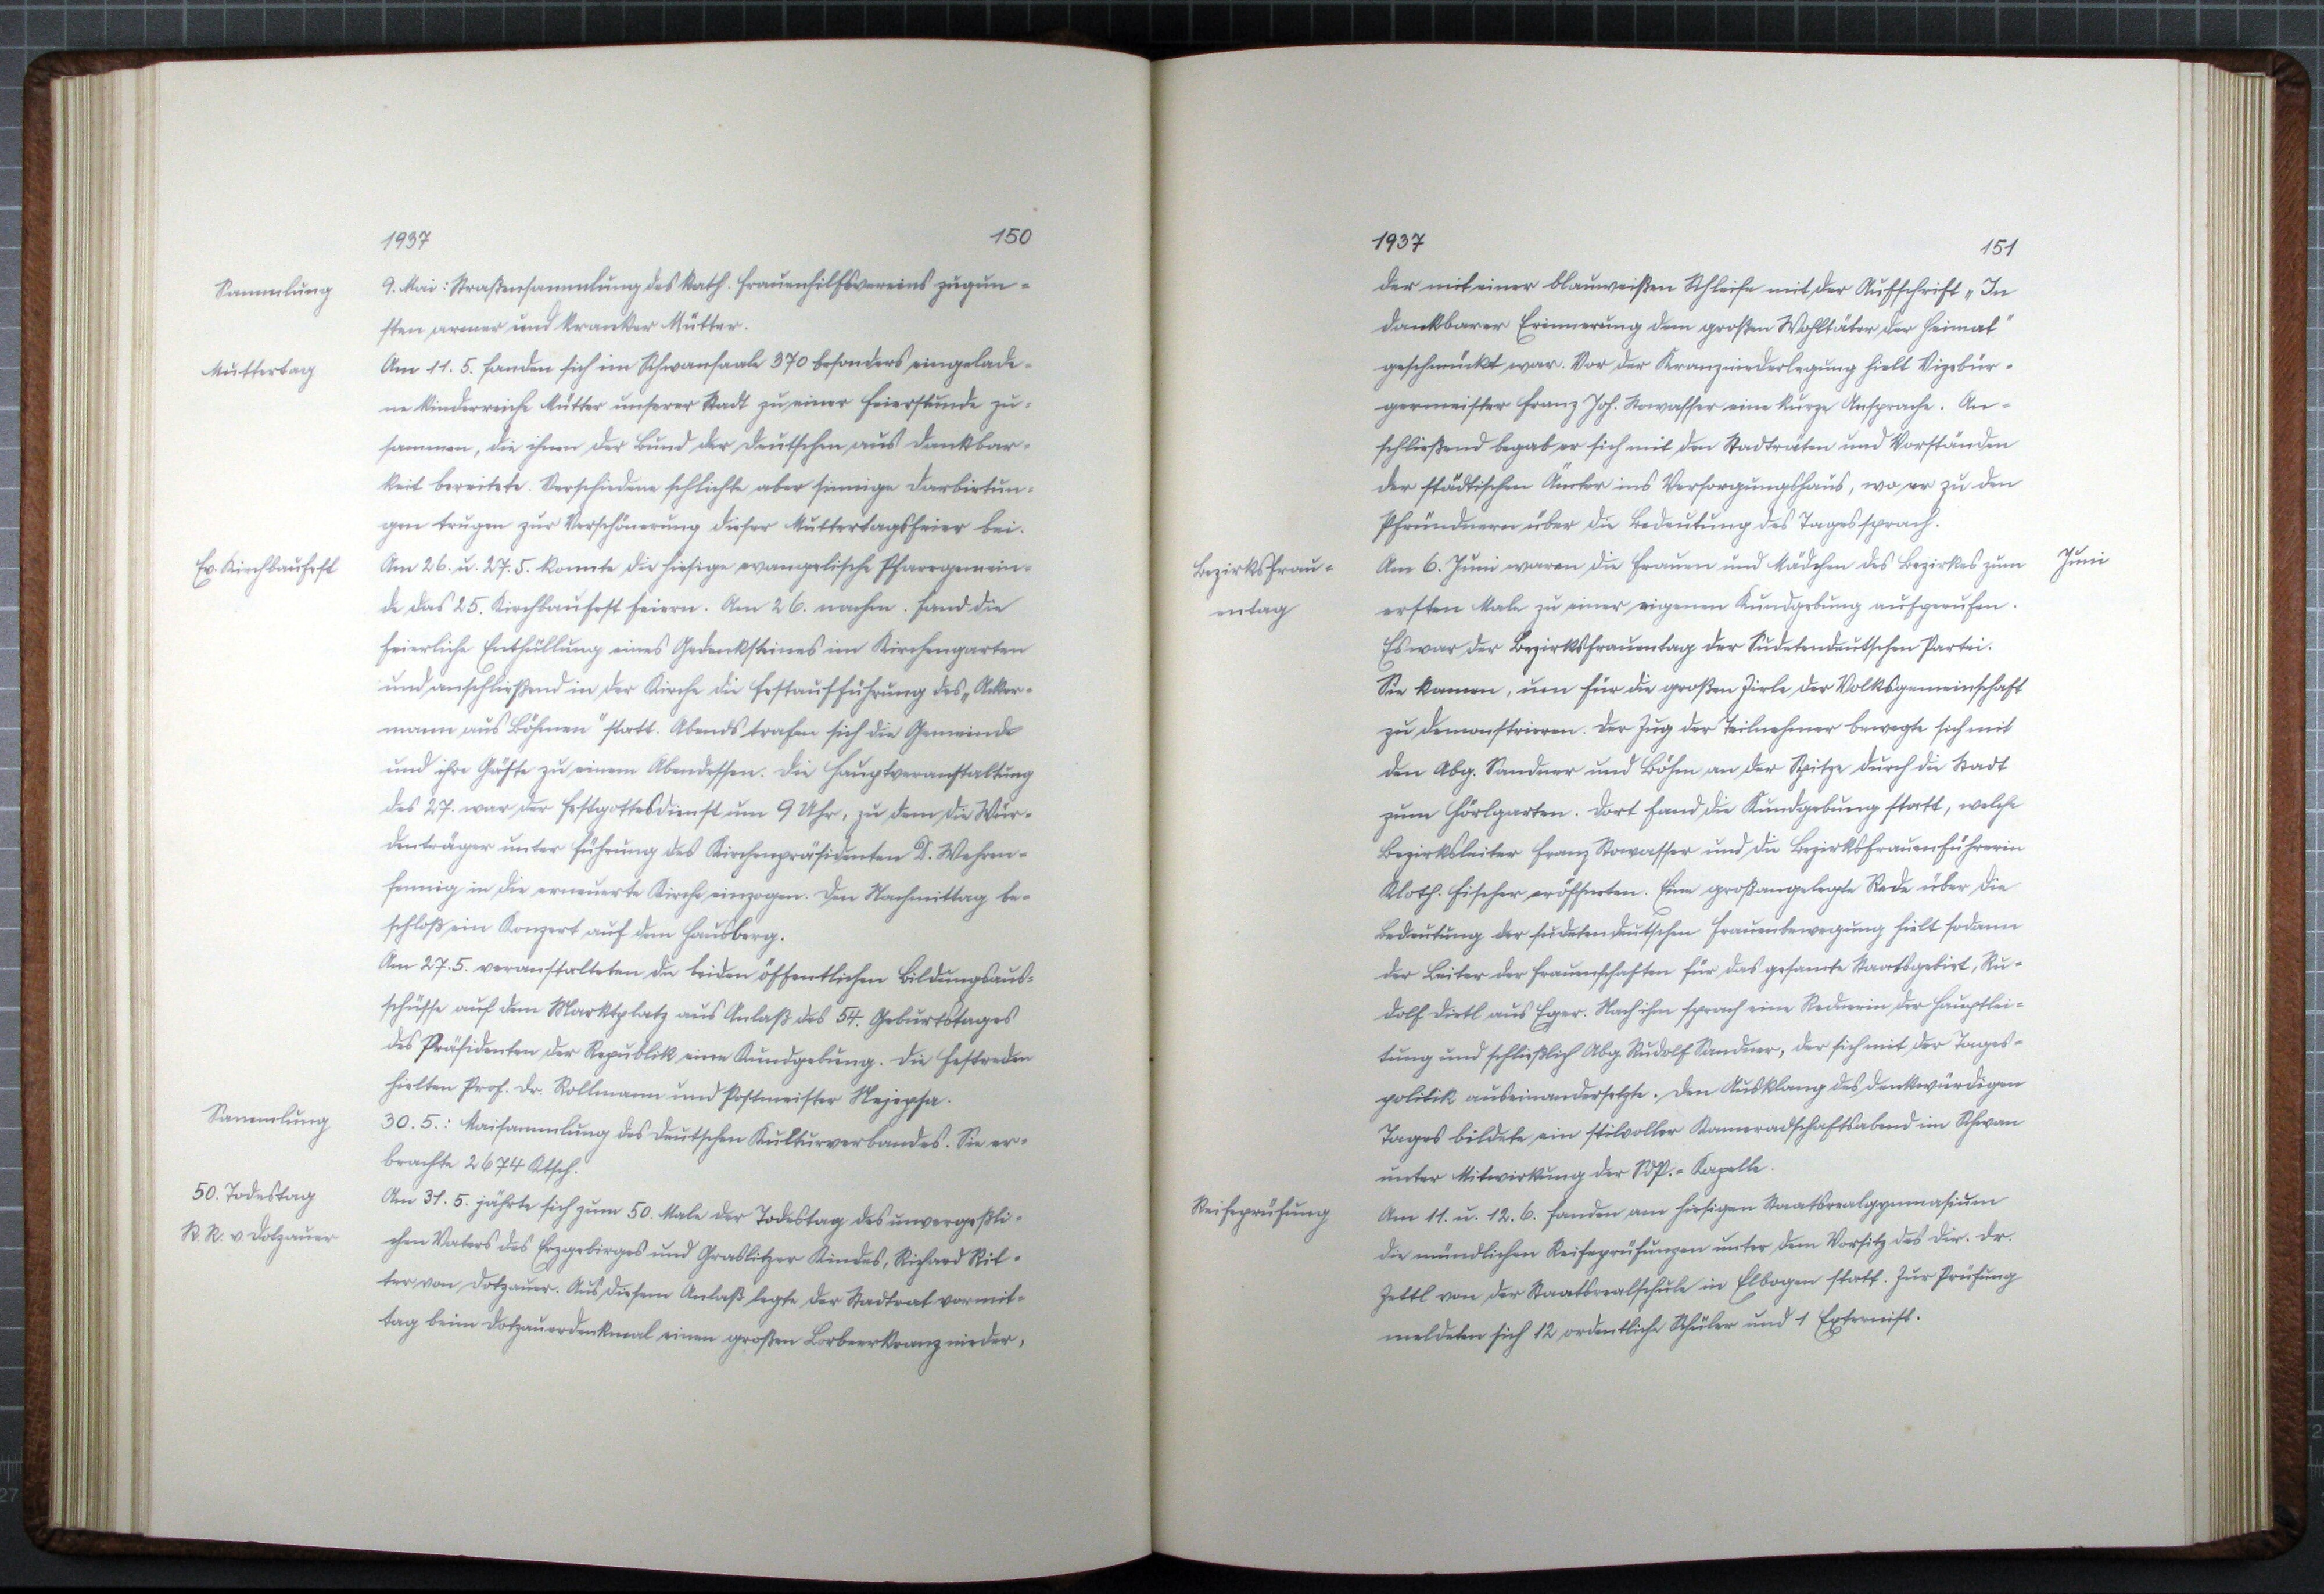 1937
150
Sammlung
9. Mai: Straßensammlung des kath. Frauenhilfsvereins zugun-
sten armer und kranker Mütter.
Muttertag
Am 11. 5. fanden sich im Schwansaale 370 besonders eingelade-
ne kinderreiche Mütter unserer Stadt zu einer Feierstunde zu-
sammen, die ihnen der Bund der Deutschen aus Dankbar-
keit bereitete. Verschiedene schlichte aber sinnige Darbietun-
gen trugen zur Verschönerung dieser Muttertagsfeier bei.
Ev. Kirchbaufest
Am 26. u. 27. 5. konnte die hiesige evangelische Pfarrgemein-
de das 25. Kirchbaufest feiern. Am 26. nachm. fand die
feierliche Enthüllung eines Gedenksteines im Kirchengarten
und anschließend in der Kirche die Festaufführung des „Acker-
mann aus Böhmen" statt. Abends trafen sich die Gemeinde
und ihre Gäste zu einem Abendessen. Die Hauptveranstaltung
des 27. war der Festgottesdienst um 9 Uhr, zu dem die Wür-
denträger unter Führung des Kirchenpräsidenten D. Wehren-
fennig in die erneuerte Kirche einzogen. Den Nachmittag be-
schloß ein Konzert auf dem Hausberg.
Am 27. 5. veranstalteten die beiden öffentlichen Bildungsaus-
schüsse auf dem Marktplatz aus Anlaß des 54. Geburtstages
des Präsidenten der Republik eine Kundgebung. Die Festreden
hielten Prof. Dr. Rollmann und Postmeister
Sammlung
30. 5.: Maisammlung des Deutschen Kulturverbandes. Sie er-
brachte 2674 Ktsch.
50. Todestag
R. R. v. Dotzauer
Am 31. 5. jährte sich zum 50. Male der Todestag des unvergeßli-
chen Vaters des Erzgebirges und Graslitzer Kindes, Richard Rit-
ter von Dotzauer. Aus diesem Anlaß legte der Stadtrat vormit-
tag beim Dotzauerdenkmal einen großen Lorbeerkranz nieder,
1937
151
der mit einer blauweißen Schleife mit der Aufschrift „In
dankbarer Erinnerung dem großen Wohltäter der Heimat"
geschmückt war. Vor der Kranzniederlegung hielt Vizebür-
germeister Franz Joh. Stowasser eine kurze Ansprache. An-
schließend begab er sich mit den Stadträten und Vorständen
der städtischen Ämter ins Versorgungshaus, wo er zu den
Pfründnern über die Bedeutung des Tages sprach.
Bezirksfrau-
entag
Am 6. Juni waren die Frauen und Mädchen des Bezirkes zum
Juni
ersten Male zu einer eigenen Kundgebung aufgerufen.
Es war der Bezirksfrauentag der Sudetendeutschen Partei.
Sie kamen, um für die großen Ziele der Volksgemeinschaft
zu demonstrieren. Der Zug der Teilnehmer bewegte sich mit
den Abg. Sandner und Böhm an der Spitze durch die Stadt
zum Hörlgarten. Dort fand die Kundgebung statt, welche
Bezirksleiter Franz Stowasser und die Bezirksfrauenführerin
Kloth. Fischer eröffneten. Eine großangelegte Rede über die
Bedeutung der sudetendeutschen Frauenbewegung hielt sodann
der Leiter der Frauenschaften für das gesamte Staatsgebiet, Ru-
dolf Dietl aus Eger. Nach ihm sprach eine Rednerin der Hauptlei-
tung und schließlich Abg. Rudolf Sandner, der sich mit der Tages-
politik auseinandersetzte. Den Ausklang des denkwürdigen
Tages bildete ein stilvoller Kameradschaftsabend im Schwan
unter Mitwirkung der SdP.-Kapelle.
Reifeprüfung
Am 11. u. 12. 6. fanden am hiesigen Staatsrealgymnasium
die mündlichen Reifeprüfungen unter dem Vorsitz des Dir. Dr.
Zettl von der Staatsrealschule in Elbogen statt. Zur Prüfung
meldeten sich 12 ordentliche Schüler und 1 Externist.